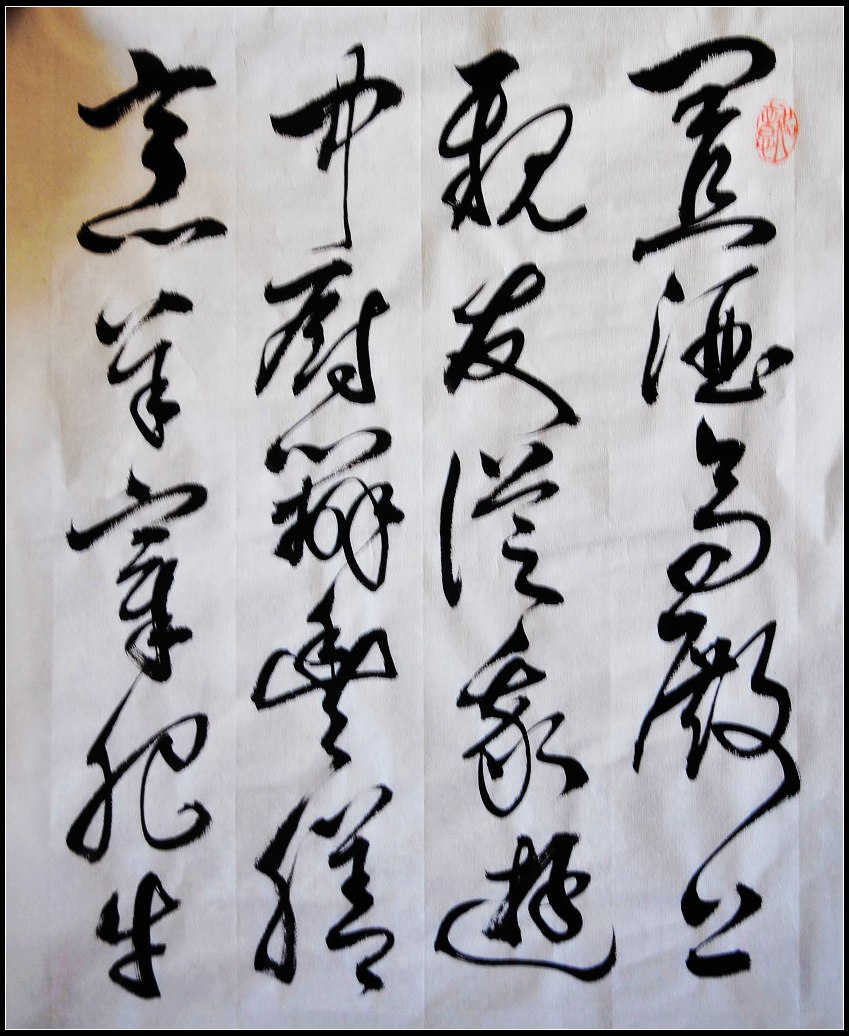 置酒高殿上
親友從我遊
中廚辦豐膳
烹羊宰肥牛